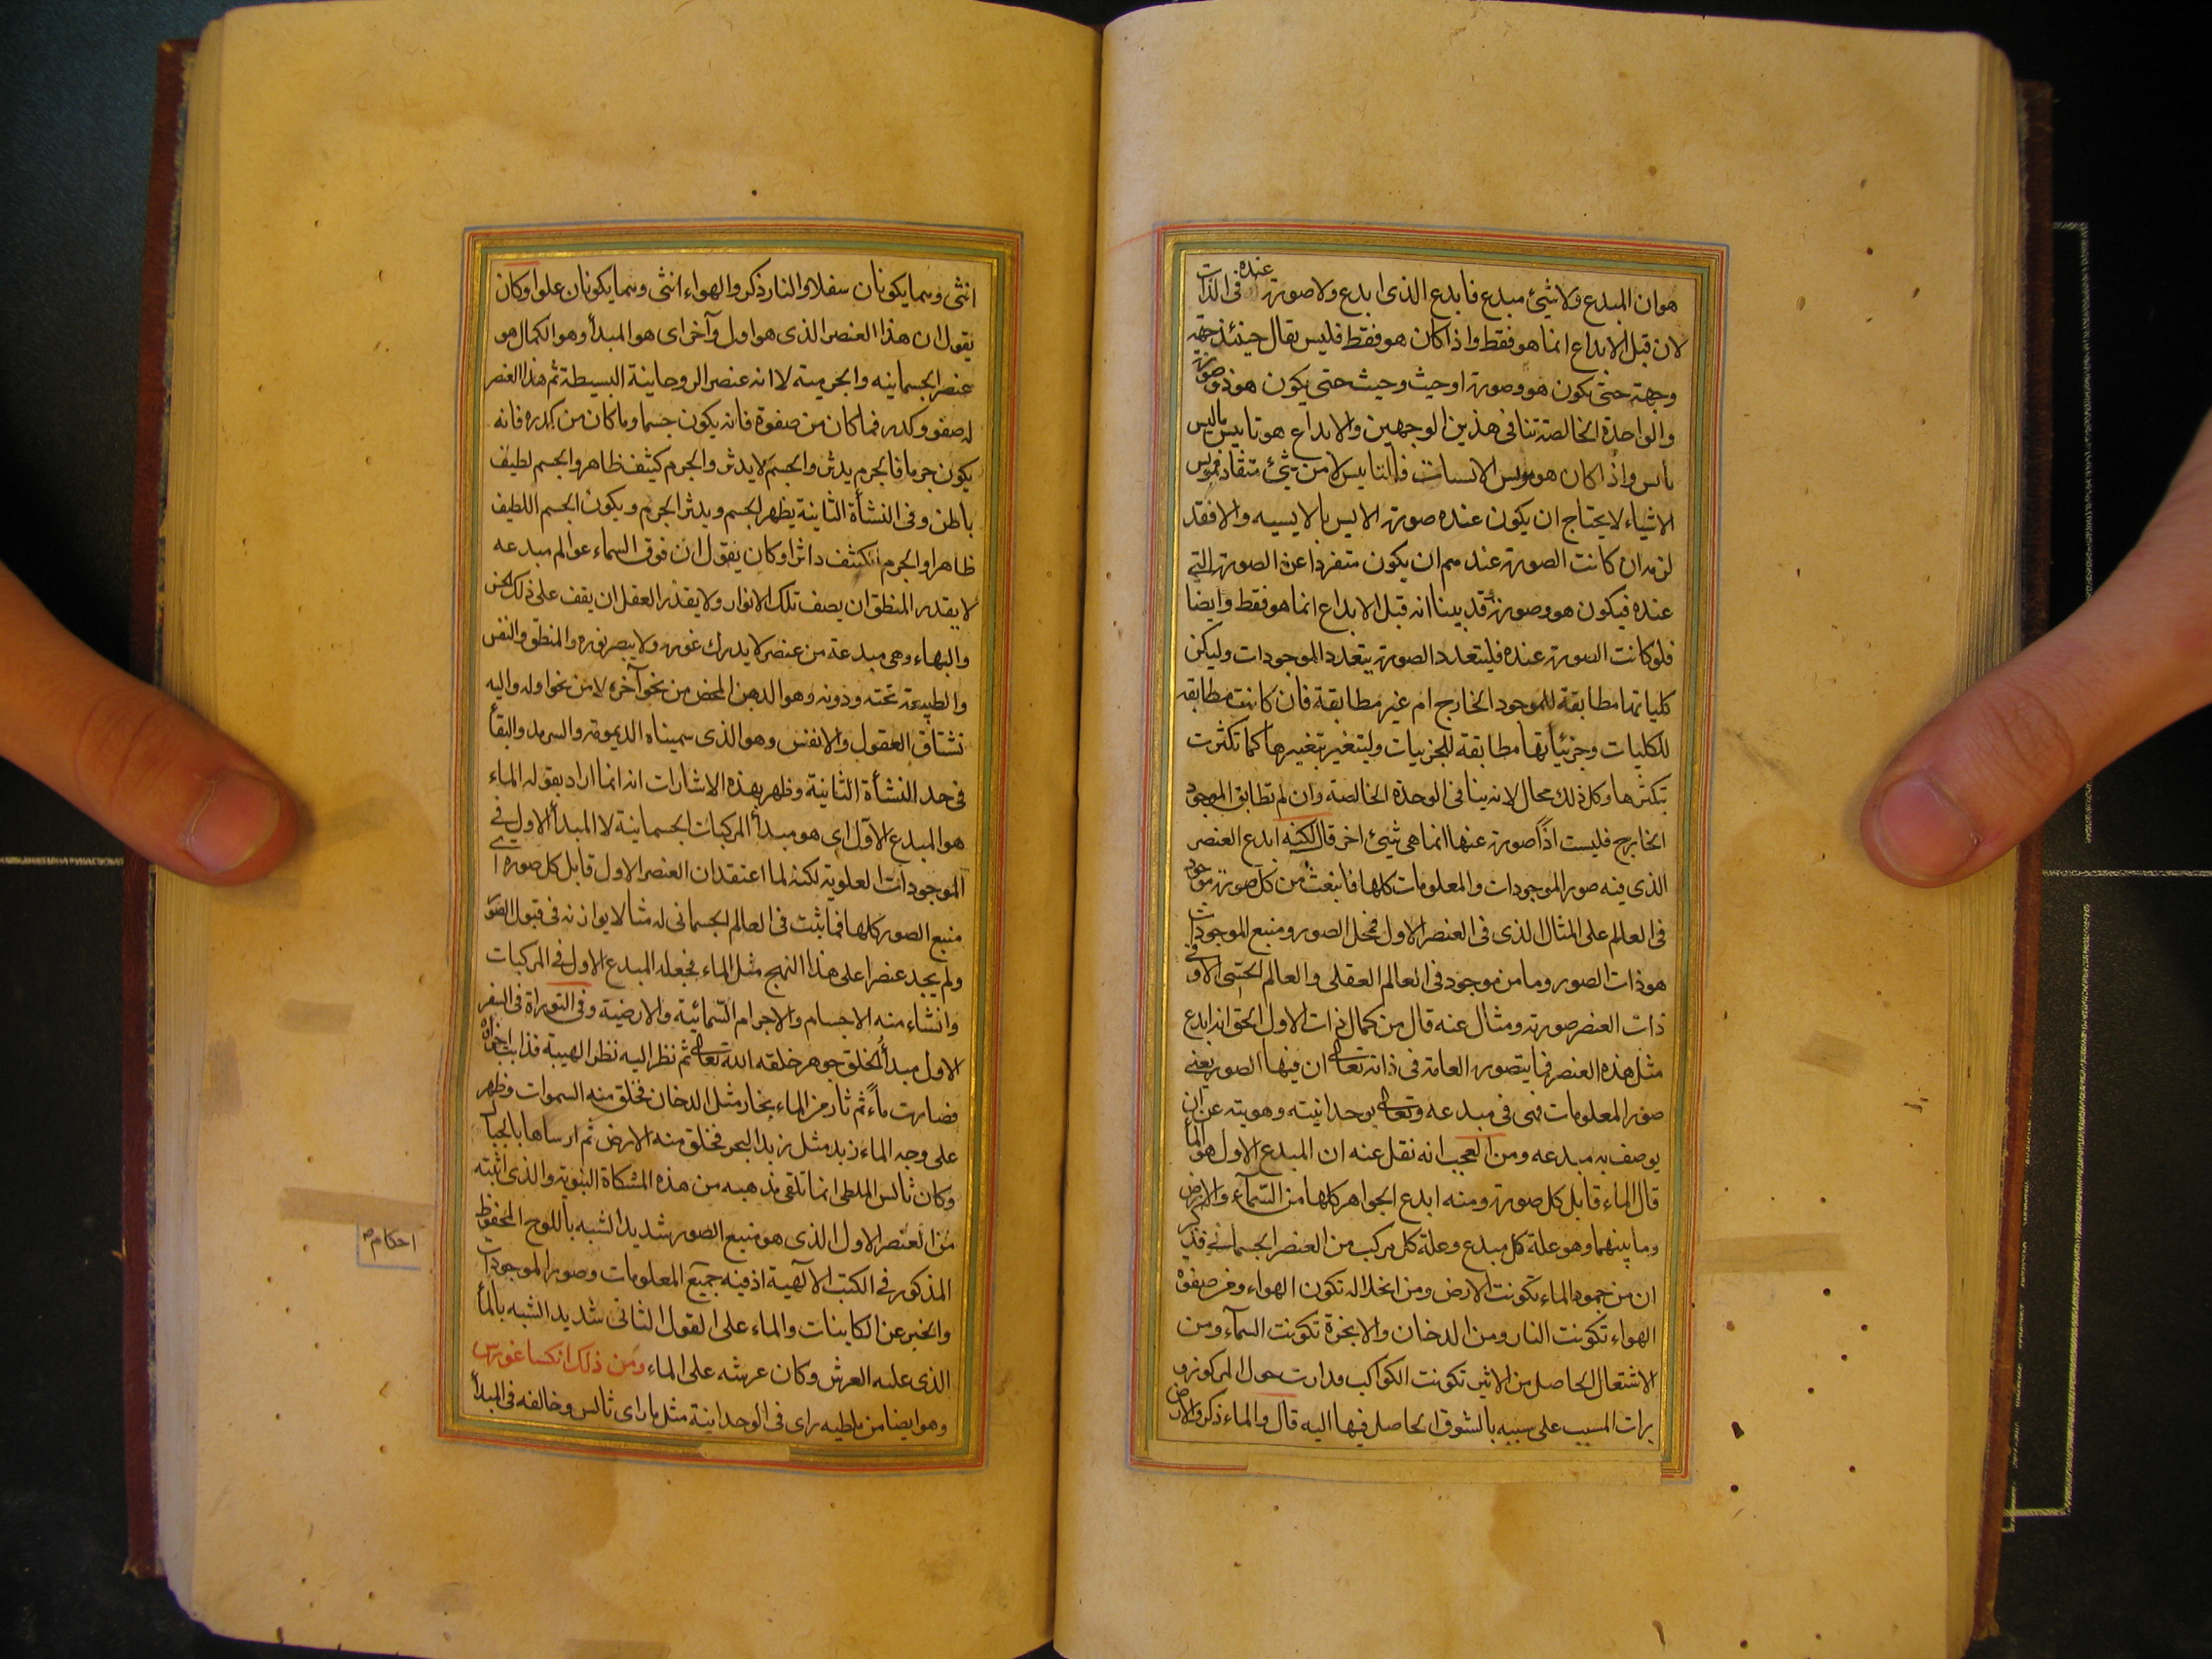 هو ان المبدع ولا شئ مبدع فابدع الذى ابدع ولا صورة عنده فى الذات
لان قبل الابداع انما هو فقط واذا كان هو فقط فليس يقال حينئذ جهة
وجهة حتى يكون هو وصورة او حيث وحيث حتى يكون هو ذو صورة
والواحدة الخالصة تنافى هذين الوجهين والابداع هو تاييس ما ليس
بايس واذا كان هو مويس الايسات فالتاييس لا من شئ متقادم فمويس
الاشياء لا يحتاج ان يكون عنده صورة الايس بالايسيه والا فقد
لزمه ان كانت الصورة عنده ان يكون متفردا عن الصورة التى
عنده فيكون هو وصورة وقد بينا انه قبل الابداع انما هو فقط وايضا
فلو كانت الصورة عنده فليتعدد الصورة بتعدد الموجودات وليكن
كلياتها مطابقة للموجود الخارج ام غير مطابقة فان كانت مطابقه
للكليات وجزئياتها مطابقة للجزئيات وليتغير بتغيرها كما تكثرت
بتكثرها وكل ذلك محال لانه ينافى الوحدة الخالصة وان لم تطابق الموجود
الخارج فليست اذًا صورة عنها انما هى شئ اخر قال لكنه ابدع العنصر
الذى فيه صور الموجودات والمعلومات كلها فانبعث من كل صورة موجود
فى العالم على المثال الذى فى العنصر الاول فمحل الصور ومنبع الموجودات
هو ذات الصور وما من موجود فى العالم العقلى والعالم الحسى الا وفى
ذات العنصر صورة ومثال عنه قال من كمال ذات الاول الحق انه ابدع
مثل هذه العنصر فما يتصوره العامة فى ذاته تعالى ان فيها الصور يعنى
صور المعلومات فهى فى مبدعه وتعالى بوحدانيته وهويته عن ان
يوصف به مبدعه ومن العجب انه نقل عنه ان المبدع الاول هو الماء
قال الماء قابل كل صورة ومنه ابدع الجواهر كلها من السماء والارض
وما بينهما وهو علة كل مبدع وعلة كل مركب من العنصر الجسمانى فذكر
ان من جمود الماء تكونت الارض ومن انحلاله تكون الهواء ومن صفوة
الهواء تكونت النار ومن الدخان والابخرة تكونت السماء ومن
الاشتعال الحاصل من الاثير تكونت الكواكب فدارت حول المركز دو
رات المسبب على سببه بالشوق الحاصل فيها اليه قال والماء ذكر والارض
انثى وهما يكونان سفلا والنار ذكر والهواء انثى وهما يكونان علوا وكان
يقول ان هذا العنصر الذى هو اول وآخر اى هو المبدأ وهو الكمال هو
عنصر الجسمانيه والجرمية لا انه عنصر الروحانية البسيطة ثم هذا العنصر
له صفو وكدر فما كان من صفوة فانه يكون جسما وما كان من كدره فانه
يكون جرما فالجرم يدثر والجسم لا يدثر والجرم كثيف ظاهر والجسم لطيف
باطن وفى النشأة الثانية يظهر الجسم ويدثر الجرم ويكون الجسم اللطيف
ظاهرا والجرم الكثيف داثرا وكان يقول ان فوق السماء عوالم مبدعه
لا يقدر المنطق ان يصف تلك الانوار ولا يقدر العقل ان يقف على ذلك الحسن
والبهاء وهى مبدعة من عنصر لا يدرك غوره ولا يبصر نوره والمنطق والنفس
والطبيعة تحته ودونه وهو الدهر المحض من نحو آخره لا من نحو اوله واليه
تشتاق العقول والانفس وهو الذى سميناه الديمومة والسرمد والبقاء
فى حد النشأة الثانية وظهر بهذه الاشارات انه انما اراد بقوله الماء
هو المبدع الاول اى هو مبدأ المركبات الجسمانية لا المبدأ الاول فى
الموجودات العلوية لكنه لما اعتقد ان العنصر الاول قابل كل صورة اى
منبع الصور كلها فما ثبت فى العالم الجسمانى له مثالا يوازنه فى قبول الصور
ولم يجد عنصرا على هذا النهج مثل الماء فجعله المبدع الاول فى المركبات
وانشاء منه الاجسام والاجرام السمائية والارضية وفى التوراة فى السفر
الاول مبدأ الخلق جوهر خلقه الله تعالى ثم نظر اليه نظر الهيبة فذابت اجزاؤه
فصارت ماءً ثم ثار من الماء بخار مثل الدخان فخلق منه السموات وظهر
على وجه الماء زبد مثل زبد البحر فخلق منه الارض ثم ارساها بالجبال
وكان ثالس الملطى انما تلقى مذهبه من هذه المشكاة النبوية والذى اثبته
من العنصر الاول الذى هو منبع الصور شديد الشبه باللوح المحفوظ
احكام
المذكور فى الكتب الالهية اذ فيه جميع المعلومات وصور الموجودات
والخبر عن الكاينات والماء على القول الثانى شديد الشبه بالماء
الذى عليه العرش وكان عرشه على الماء ومن ذلك انكساغورس
وهو ايضا من ملطيه راى فى الوحدانية مثل ما راى ثالس وخالفه فى المبدأ